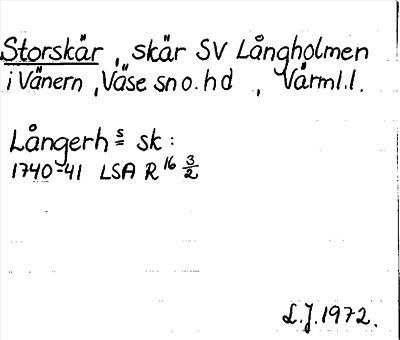 Storskär, skär SV Långholmen
i Vänern, Väse sn o. hd, Värml.l.
Långerhs sk:
1740-41 LSA R16 3/2
L.J. 1972.